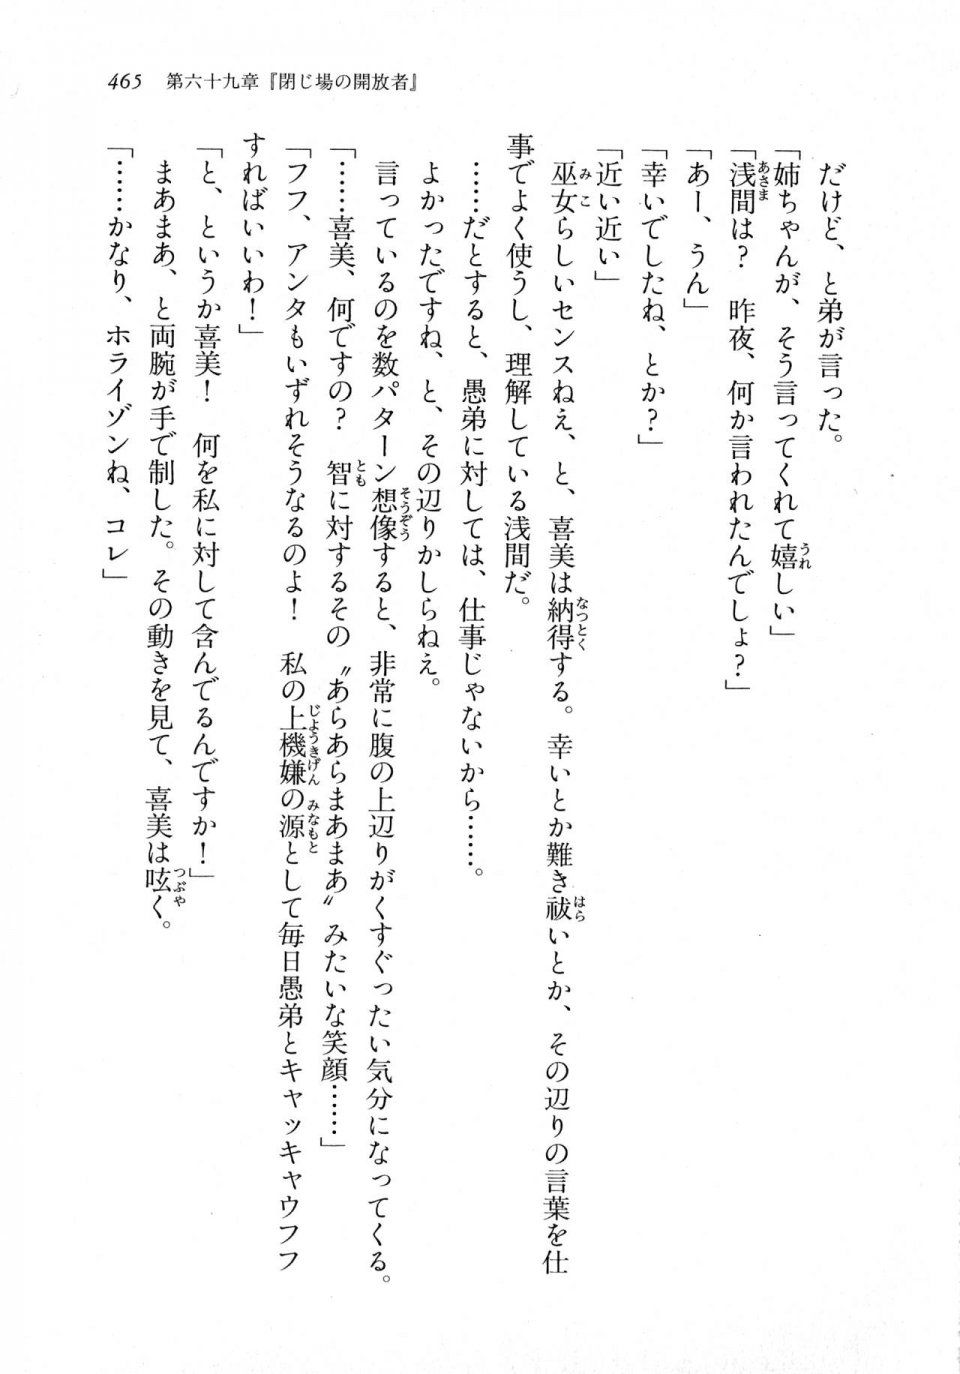 465　第六十九章『閉じ場の開放者』
　だけど、と弟が言った。
「姉ちゃんが、そう言ってくれて嬉しい」
「浅間は？　昨夜、何か言われたんでしょ？」
「あー、うん」
「幸いでしたね、とか？」
「近い近い」
　巫女らしいセンスねえ、と、喜美は納得する。幸いとか難き祓いとか、その辺りの言葉を仕
事でよく使うし、理解している浅間だ。
　……だとすると、愚弟に対しては、仕事じゃないから……。
　よかったですね、と、その辺りかしらねえ。
　言っているのを数パターン想像すると、非常に腹の上辺りがくすぐったい気分になってくる。
「……喜美、何ですの？　智に対するその〝あらあらまあまあ〟みたいな笑顔……」
「フフ、アンタもいずれそうなるのよ！　私の上機嫌の源として毎日愚弟とキャッキャウフフ
すればいいわ！」
「と、というか喜美！　何を私に対して含んでるんですか！」
　まあまあ、と両腕が手で制した。その動きを見て、喜美は呟く。
「……かなり、ホライゾンね、コレ」